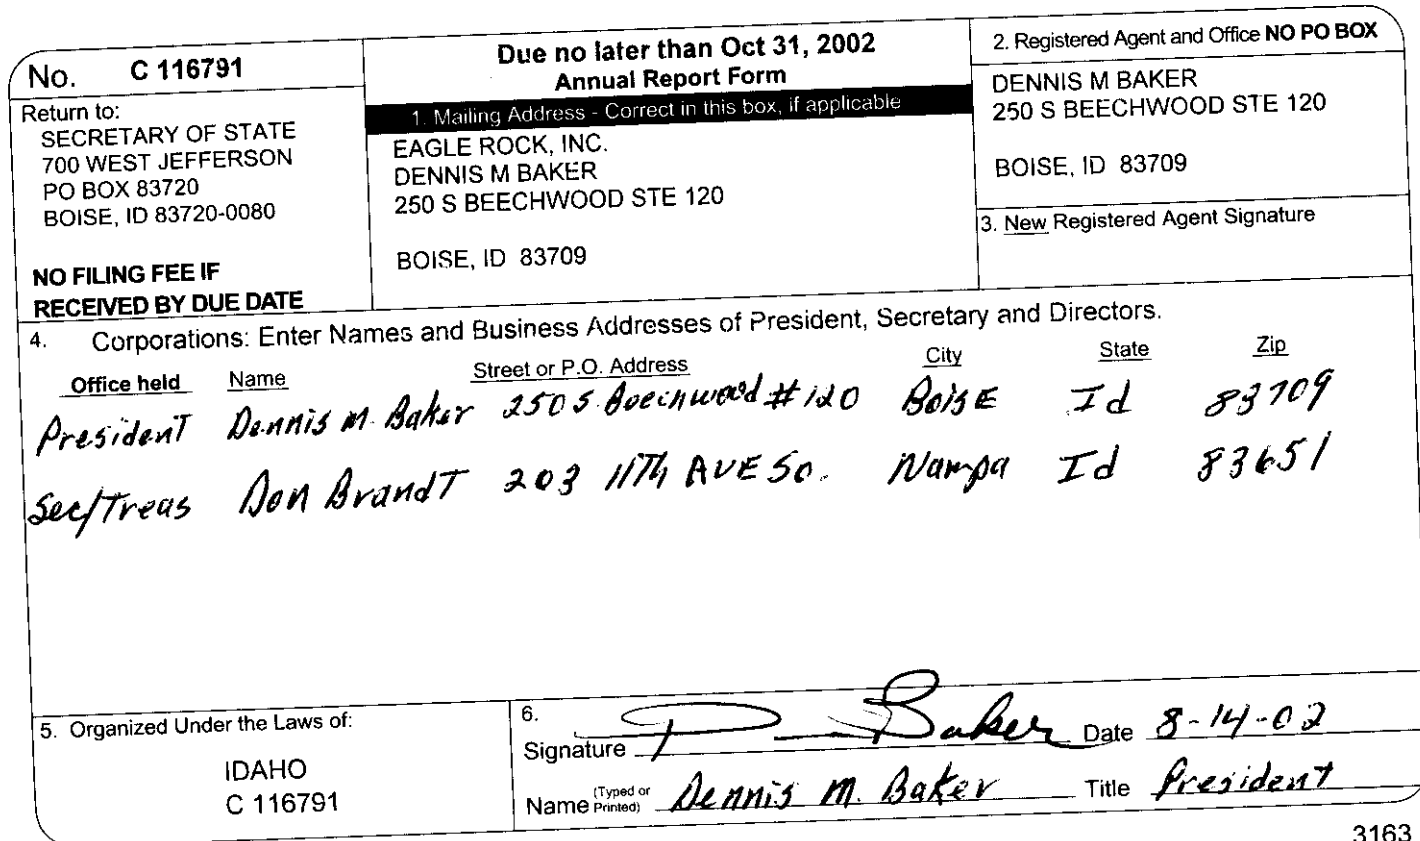 No. C 116791
Return to:
SECRETARY OF STATE
700 WEST JEFFERSON
PO BOX 83720
BOISE, ID 83720-0080
NO FILING FEE IF
RECEIVED BY DUE DATE
Due no later than Oct 31, 2002
Annual Report Form
1. Mailing Address - Correct in this box, if applicable
EAGLE ROCK, INC.
DENNIS M BAKER
250 S BEECHWOOD STE 120
BOISE, ID 83709
2. Registered Agent and Office NO PO BOX
DENNIS M BAKER
250 S BEECHWOOD STE 120
BOISE, ID 83709
3. New Registered Agent Signature
4. Corporations: Enter Names and Business Addresses of President, Secretary and Directors.
Office held Name Street or P.O. Address City State Zip
President Dennis M. Baker 250 S. Beechwood #120 Boise Id 83709
Sec/Treas Don Brandt 203 11th AVE So. Nampa Id 83651
5. Organized Under the Laws of:
IDAHO
C 116791
6.
Signature D Baker Date 8-14-02
Name (Typed or Printed) Dennis M. Baker Title President
3163